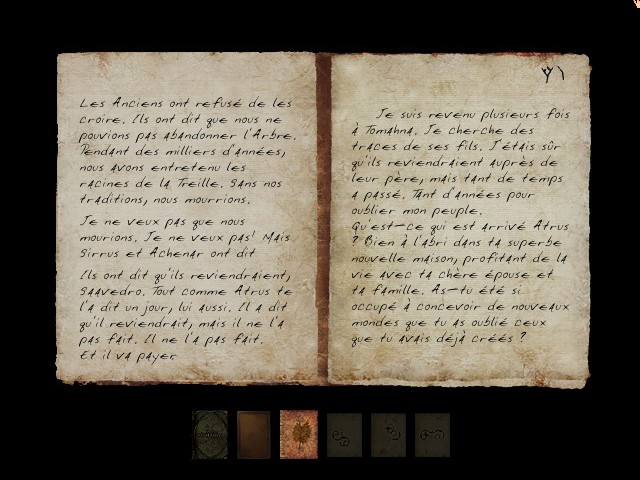 Les Anciens ont refusé de les
croire. Ils ont dit que nous ne
pouvions pas abandonner l'Arbre.
Pendant des milliers d'années,
nous avons entretenu les
racines de la Treille. Sans nos
traditions, nous mourrions.
Je ne veux pas que nous
mourions. Je ne veux pas! Mais
Sirrus et Achenar ont dit
Ils ont dit qu'ils reviendraient,
Saavedro. Tout comme Atrus te
l'a dit un jour, lui aussi. Il a dit
qu'il reviendrait, mais il ne l'a
pas fait. Il ne l'a pas fait.
Et il va payer
Je suis revenu plusieurs fois
à Tomahna. Je cherche des
traces de ses fils. J'étais sûr
qu'ils reviendraient auprès de
leur père, mais tant de temps
a passé. Tant d'années pour
oublier mon peuple.
Qu'est-ce qui est arrivé Atrus
? Bien à l'abri dans ta superbe
nouvelle maison, profitant de la
vie avec ta chère épouse et
ta famille. As-tu été si
occupé à concevoir de nouveaux
mondes que tu as oublié ceux
que tu avais déjà créés ?